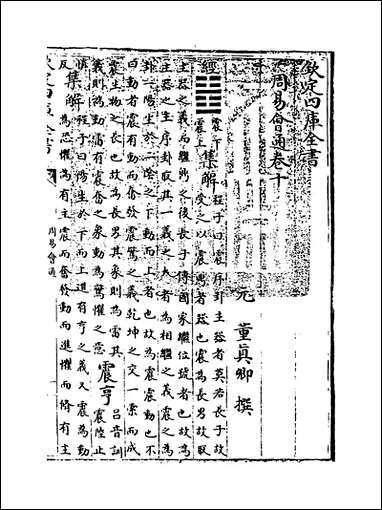 欽定四庫全書
周易會通卷十
元 董真卿 撰
經䷲震下震上 集解 程子曰震序卦主器者莫若長子故
受之以震鼎者器也震為長男故取
主器之義而繼鼎之後長子傳國家繼位號者也故為
主器之主序卦取其一義之大者為相繼之義震之為
卦一陽生於二陰之下動而上者也故為震震動也不
曰動者震有動而奮發震驚之義乾坤之交一索而成
震生物之長也故為長男其象則為雷其
義則為動雷有震奮之象動為驚懼之意
震亨 呂音訓
震陸止
慎反 集解 程子曰陽生於下而上進有亨之義又震為動
為恐懼為有主震而奮發動而進懼而脩有主
欽定四庫全書
周易會通